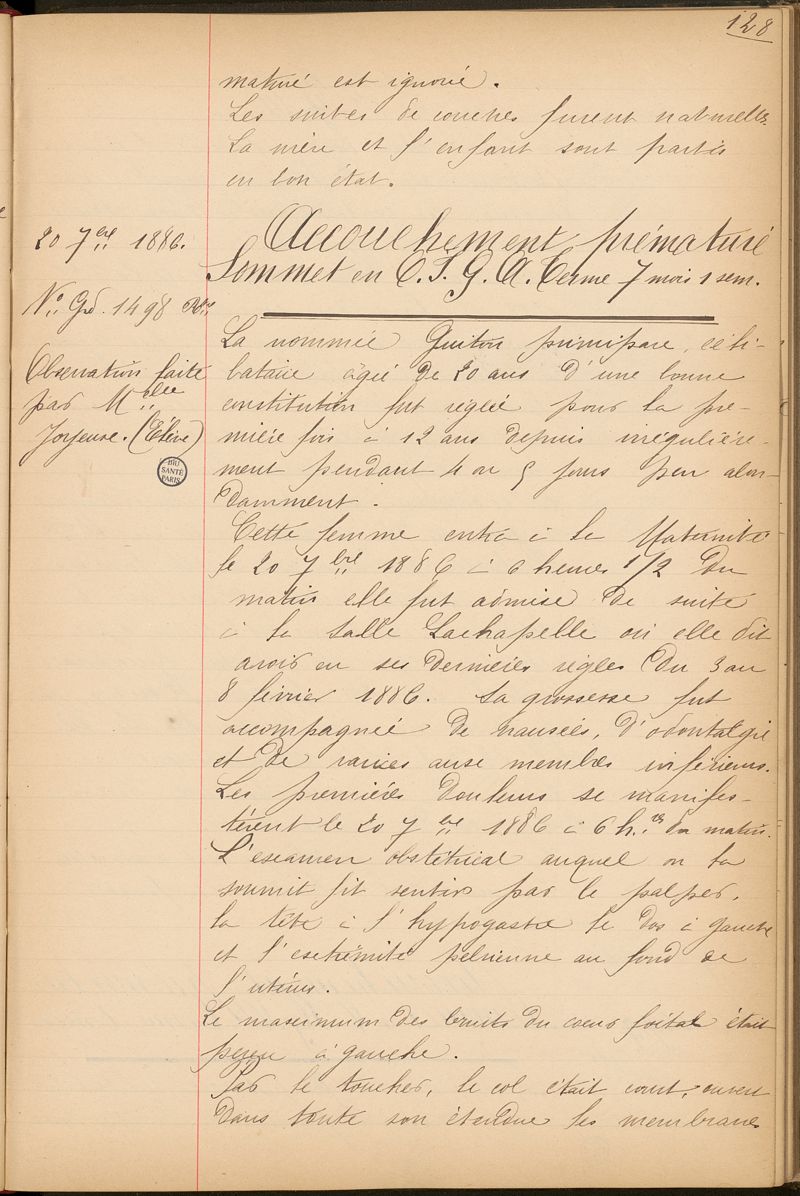 128
maturé est ignorée.
Les suites de couches furent naturelles.
La mère et l'enfant sont partis
en bon état.
20 7bre 1886.
Accouchement prématuré
Sommet en O.I.G.A. Terme 7 mois 1 sem.
No Gd. 1498
Observation faite
par Melle
Joyeuse. (Elève)
BIU
SANTÉ
PARIS
La nommée Guiton primipare, céli-
bataire âgée de 20 ans d'une bonne
constitution fut réglée pour la pre-
mière fois à 12 ans depuis irrégulière-
ment pendant 4 ou 5 jours peu abon-
damment.
Cette femme entra à la Maternité
le 20 7bre 1886 à 6 heures 1/2 du
matin elle fut admise de suite
à la salle Lachapelle où elle dit
avoir eu ses dernières règles du 3 au
8 février 1886. Sa grossesse fut
accompagnée de nausées, d'odontalgie
et de varices aux membres inférieurs.
Les premières douleurs se manifes-
tèrent le 20 7bre 1886 à 6 h.res du matin.
L'examen obstétrical auquel on la
soumit fit sentir par le palper,
la tête à l'hypogastre le dos à gauche
et l'extrémité pelvienne au fond de
l'utérus.
Le maximum des bruits du coeur foetal était
perçu à gauche.
Par le toucher, le col était court, ouvert
dans toute son étendue les membranes